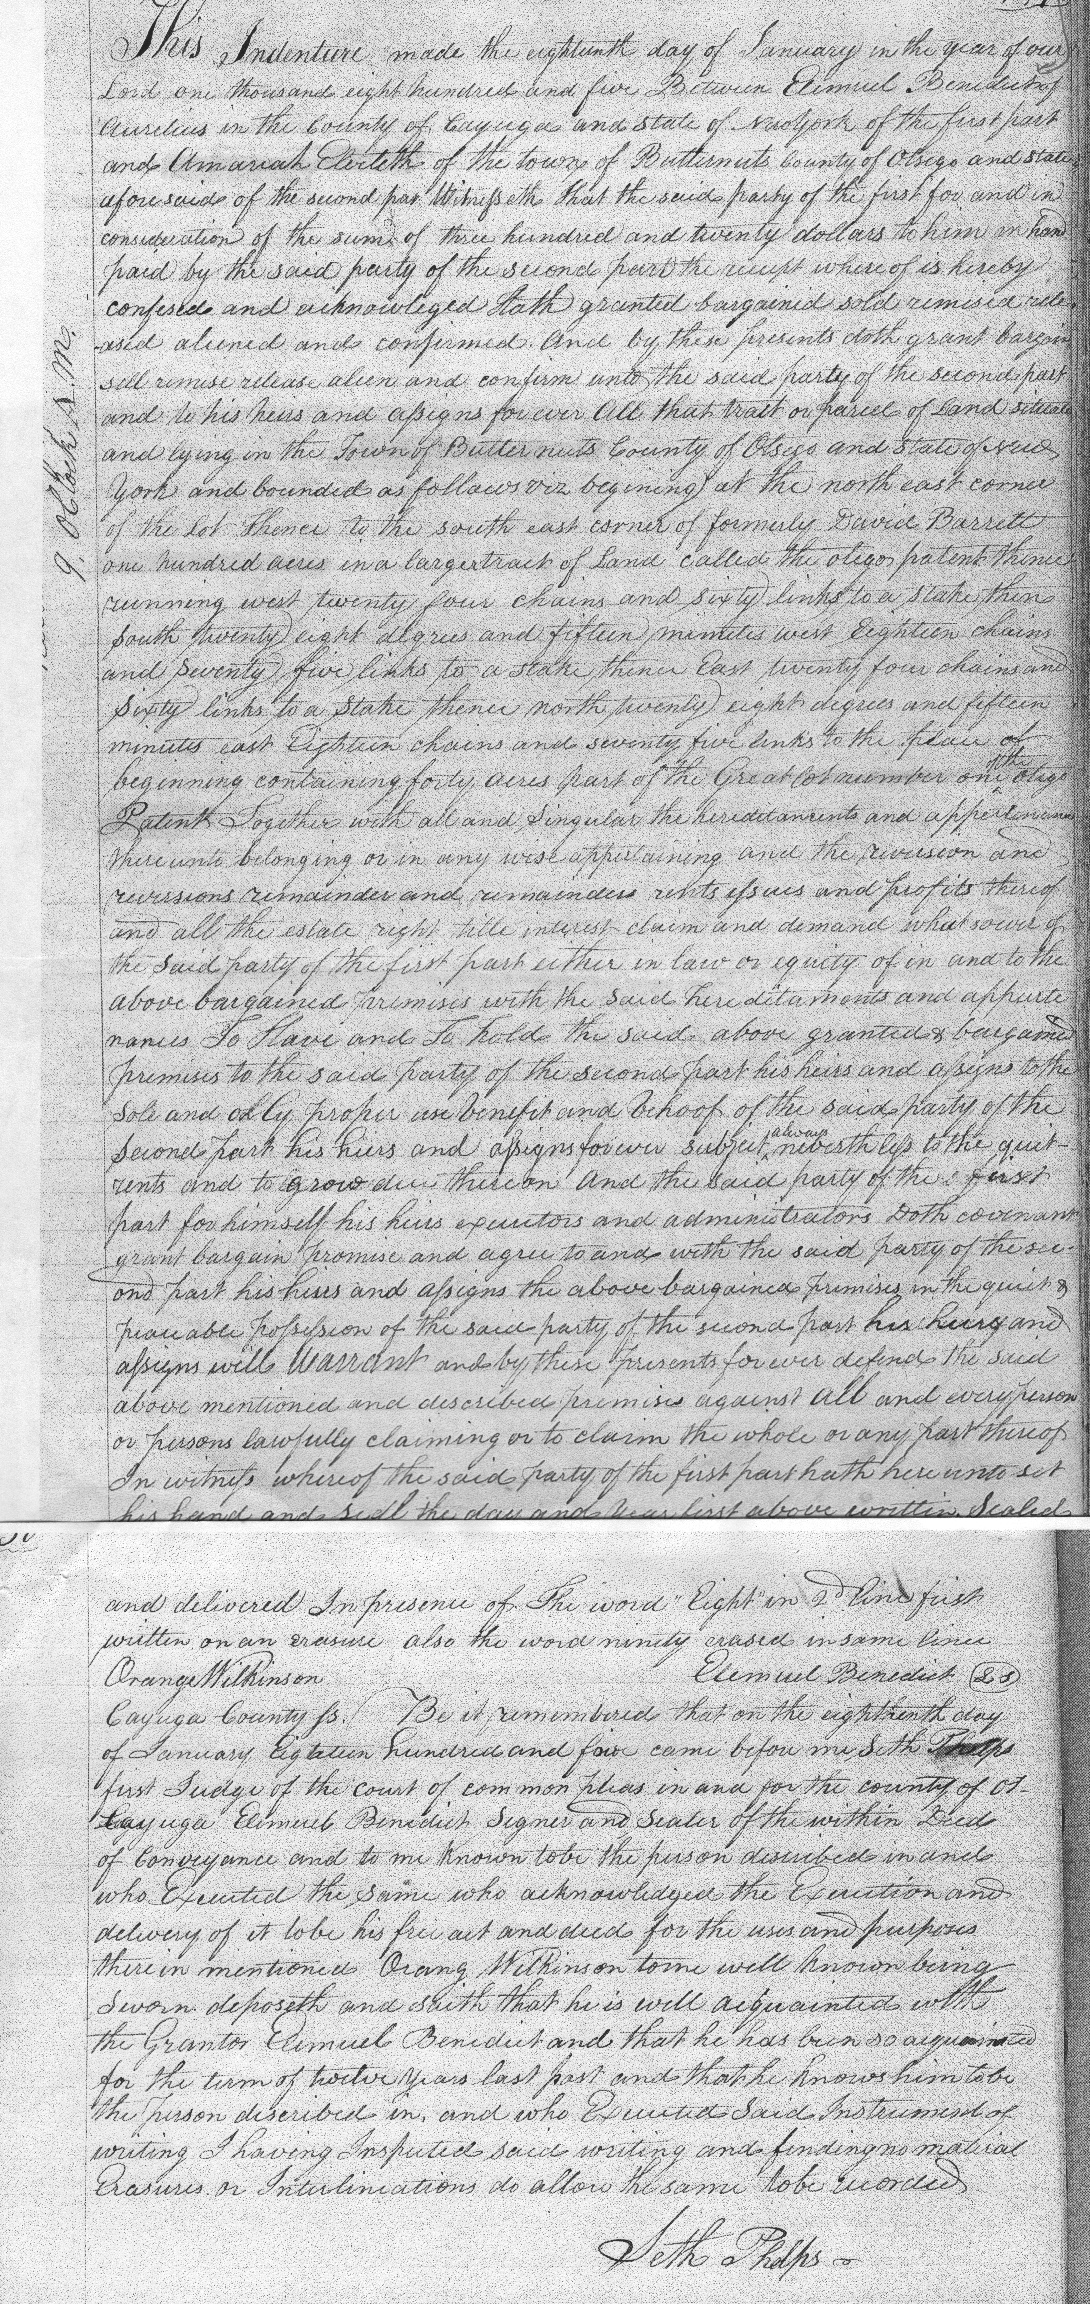 This Indenture made the eighteenth day of January in the year of our
Lord one thousand eight hundred and five Between Elimuel Benedict of
Aurelius in the County of Cayuga and State of New York of the first part
and Amariah of the town of Butternuts County of Otsego and State
afore said of the second par Witnesseth that the said party of the first for and in
consideration of the sum of three hundred and twenty dollars to him in hand
paid by the said party of the second part the receipt where of is hereby
confesed and acknowleged Hath granted bargained sold remised rele
-ased aliened and confirmed And by these presents doth grant bargain
sell remise release alien and confirm unto the said party of the second part
and to his heirs and assigns for ever All that tract or parcel of Land situate
and lying in the Town of Butternuts County of Otsego and State of New
York and bounded as follows viz begining at the north east corner
of the lot thence to the south east corner of formerly David Barrett
one hundred acres in a larger tract of Land called the otego patent thence
running west twenty four chains and sixty links to a stake then
south twenty eight degrees and fifteen minutes west Eighteen chains
and seventy five links to a stake thence East twenty four chains and
sixty links to a stake thence north twenty eight degrees and fifteen
minutes east Eighteen chains and seventy five links to the place of
beginning containing forty acres part of the Great lot number one of the otego
Patent Together with all and singular the hereditaments and appertenances
there unto belonging or in any wise appertaining and the revision and
reverssions remainder and remainders rents issues and profits thereof
and all the estate right title interest claim and demand what soever of
the said party of the first part either in law or equity of in and to the
above bargained premises with the said here ditaments and appurte
nances To Have and To hold the said above granted & bargained
premises to the said party of the second part his heirs and assigns to the
sole and only proper use benefit and behoof of the said party of the
second part his heirs and assigns forever subject always neverth less to the quit-
rents and to grow due thereon And the said party of the first
part for himself his heirs executors and administrators Doth covenant
grant bargain promise and agree to and with the said party of the sec-
ond part his heirs and assigns the above bargained premises in the quiet &
peaceable possession of the said party of the second part his heirs and
assigns will Warrant and by these presents for ever defend the said
above mentioned and described premises against all and every person
or persons lawfully claiming or to claim the whole or any part thereof
In witness whereof the said party of the first part hath here unto set
his hand and seal the day and year first above written Sealed
9 Oclock A. M.
and delivered In presence of The word "Eight" in 2d line first
written on an erasure also the word ninety erased in same line
Orange Wilkinson Elemuel Benedict L S
Cayuga County ss. Be it remembered that on the eighteenth day
of January Eighteen hundred and five came before me Seth Phelps
first Judge of the court of common pleas in and for the county of Ot-
Cayuga Elimuel Benedict Signer and Sealer of the within Deed
of Conveyance and to me known to be the person discribed in and
who Executed the same who acknowledged the Execution and
delivery of it to be his free act and deed for the uses and purposes
there in mentioned Orang Wilkinson to me well known being
sworn deposeth and saith that he is well acquainted with
the Grantor Elimuel Benedict and that he has been so acquainted
for the term of twelve years last past and that he knows him to be
the person discribed in, and who Executed said Instrument of
writing I having Inspected said writing and finding no material
Erasures or Interliniations do allow the same to be recorded
Seth Phelps